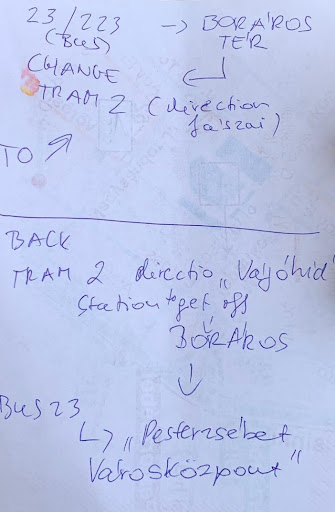 23/223 → BORÁROS
(BUS) TÉR
CHANGE
TRAM 2 (direction
Jászai)
TO
BACK
TRAM 2 directio „Vágóhíd"
Station to get off
BORÁROS
BUS 23
„Pesterzsébet
Városközpont"